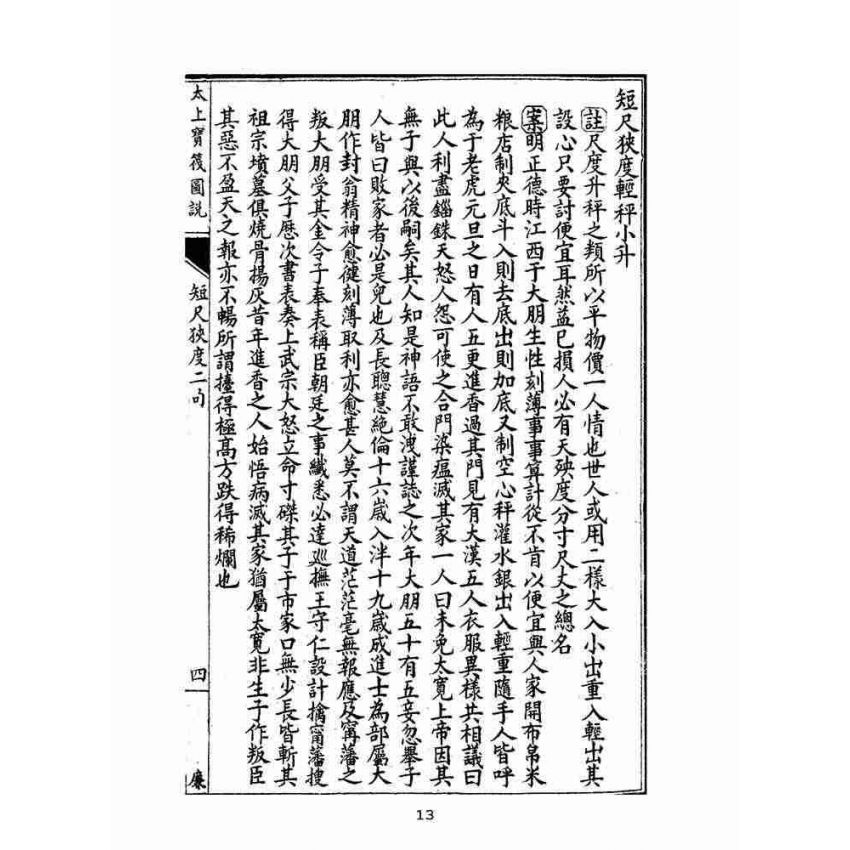 短尺狹度輕秤小升
註尺度升秤之類所以平物價一人情也世人或用二樣大入小出重入輕出其
設心只要討便宜耳然益已損人必有天殃度分寸尺丈之總名
案明正德時江西于大朋生性刻薄事事算計從不肯以便宜與人家開布帛米
粮店制夾底斗入則去底出則加底又制空心秤灌水銀出入輕重隨手人皆呼
為于老虎元旦之日有人五更進香過其門見有大漢五人衣服異樣共相議曰
此人利盡錙銖天怒人怨可使之合門染瘟滅其家一人曰未免太寬上帝因其
無子與以後嗣矣其人知是神語不敢洩謹誌之次年大朋五十有五妾忽舉子
人皆曰敗家者必是兒也及長聰慧絶倫十六歲入泮十九歲成進士為部屬大
朋作封翁精神愈健刻薄取利亦愈甚人莫不謂天道茫茫毫無報應及寗藩之
叛大朋受其金令子奉表稱臣朝廷之事纖悉必達巡撫王守仁設計擒甯藩搜
得大朋父子歷次書表奏上武宗大怒立命寸磔其子于市家口無少長皆斬其
祖宗墳墓俱燒骨揚灰昔年進香之人始悟病滅其家猶屬太寬非生子作叛臣
其惡不盈天之報亦不暢所謂擡得極高方跌得稀爛也
太上寶筏圖説
短尺狹度二句
四
廉
13